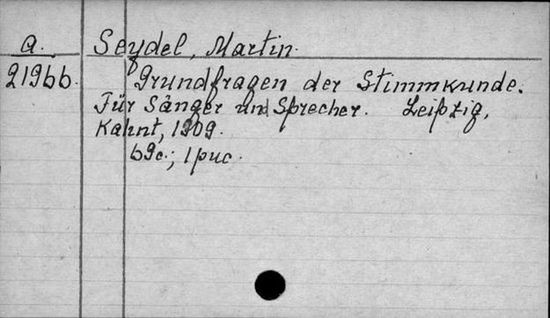 a. Seydel, Martin.
21966. Grundfragen der Stimmkunde.
Für Sänger und Sprecher. Leipzig,
Kahnt, 1909.
69c.; 1 рис.